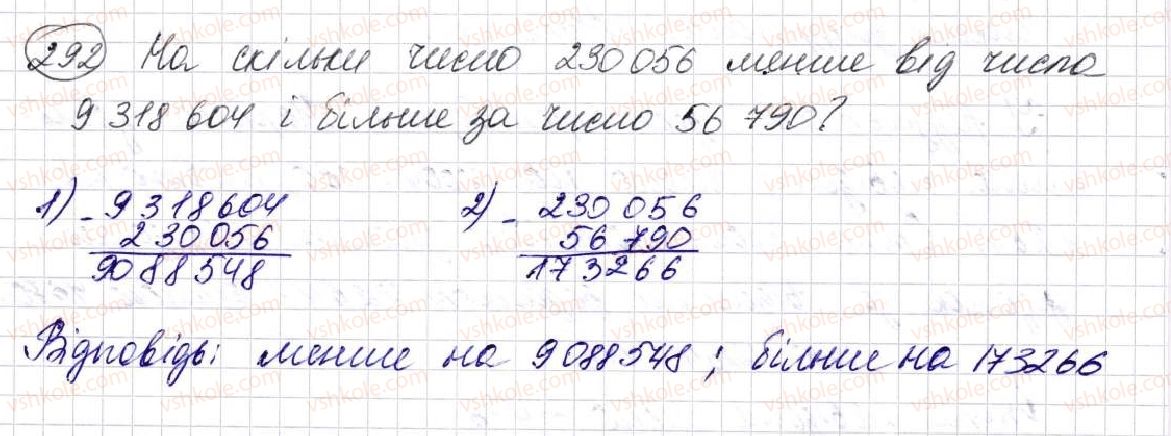 292 На скільки число 230 056 менше від числа
9 318 604 і більше за число 56 790?
1) - 9318604   2) - 230 056
230056   56 790
9088548   173266
Відповідь: менше на 9088548; більше на 173266